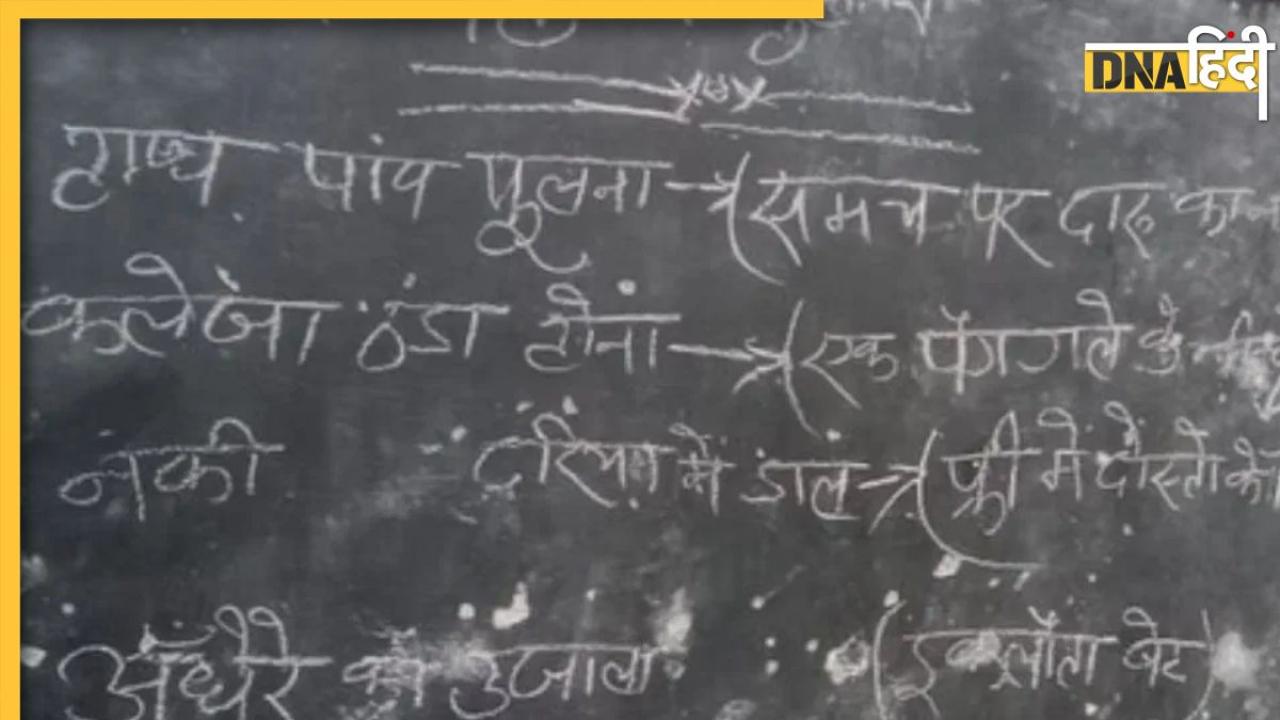 DNA हिंदी
हाथ पांव फूलना → (समय पर दारु का
कलेजा ठंडा होना → (एक पैग गले के
नकी दरिया में डाल → (फ्री में दोस्तो को
अँधेरे का उजाला (इकलौता बेट)